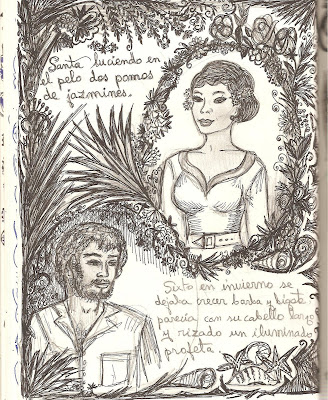 Santa luciendo en
el pelo dos pomos
de jazmines.
Sixto en invierno se
dejaba crecer barba y bigote
parecía con su cabello largo
y rizado un iluminado
profeta.